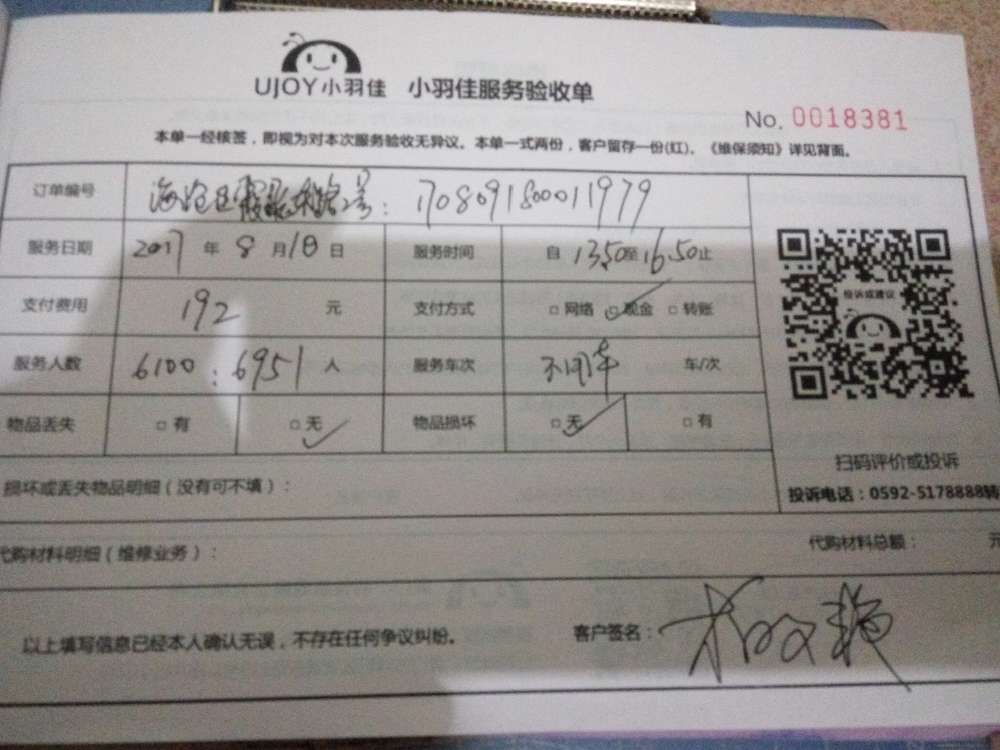 UJOY小羽佳 小羽佳服务验收单
No. 0018381
本单一经核签，即视为对本次服务验收无异议。本单一式两份，客户留存一份(红)。《维保须知》详见背面。
订单编号 海沧区 号： 170809180011979
服务日期 2017 年 8 月 18 日 服务时间 自 13.50 至 16.50 止
支付费用 192 元 支付方式 □ 网络 □ 现金 □ 转账
服务人数 6100：6951 人 服务车次 不用车 车/次
物品丢失 □ 有 □ 无 物品损坏 □ 无 □ 有
投诉或建议
扫码评价或投诉
投诉电话：0592-5178888转
损坏或丢失物品明细（没有可不填）：
代购材料明细（维修业务）： 代购材料总额： 元
以上填写信息已经本人确认无误，不存在任何争议纠纷。 客户签名：